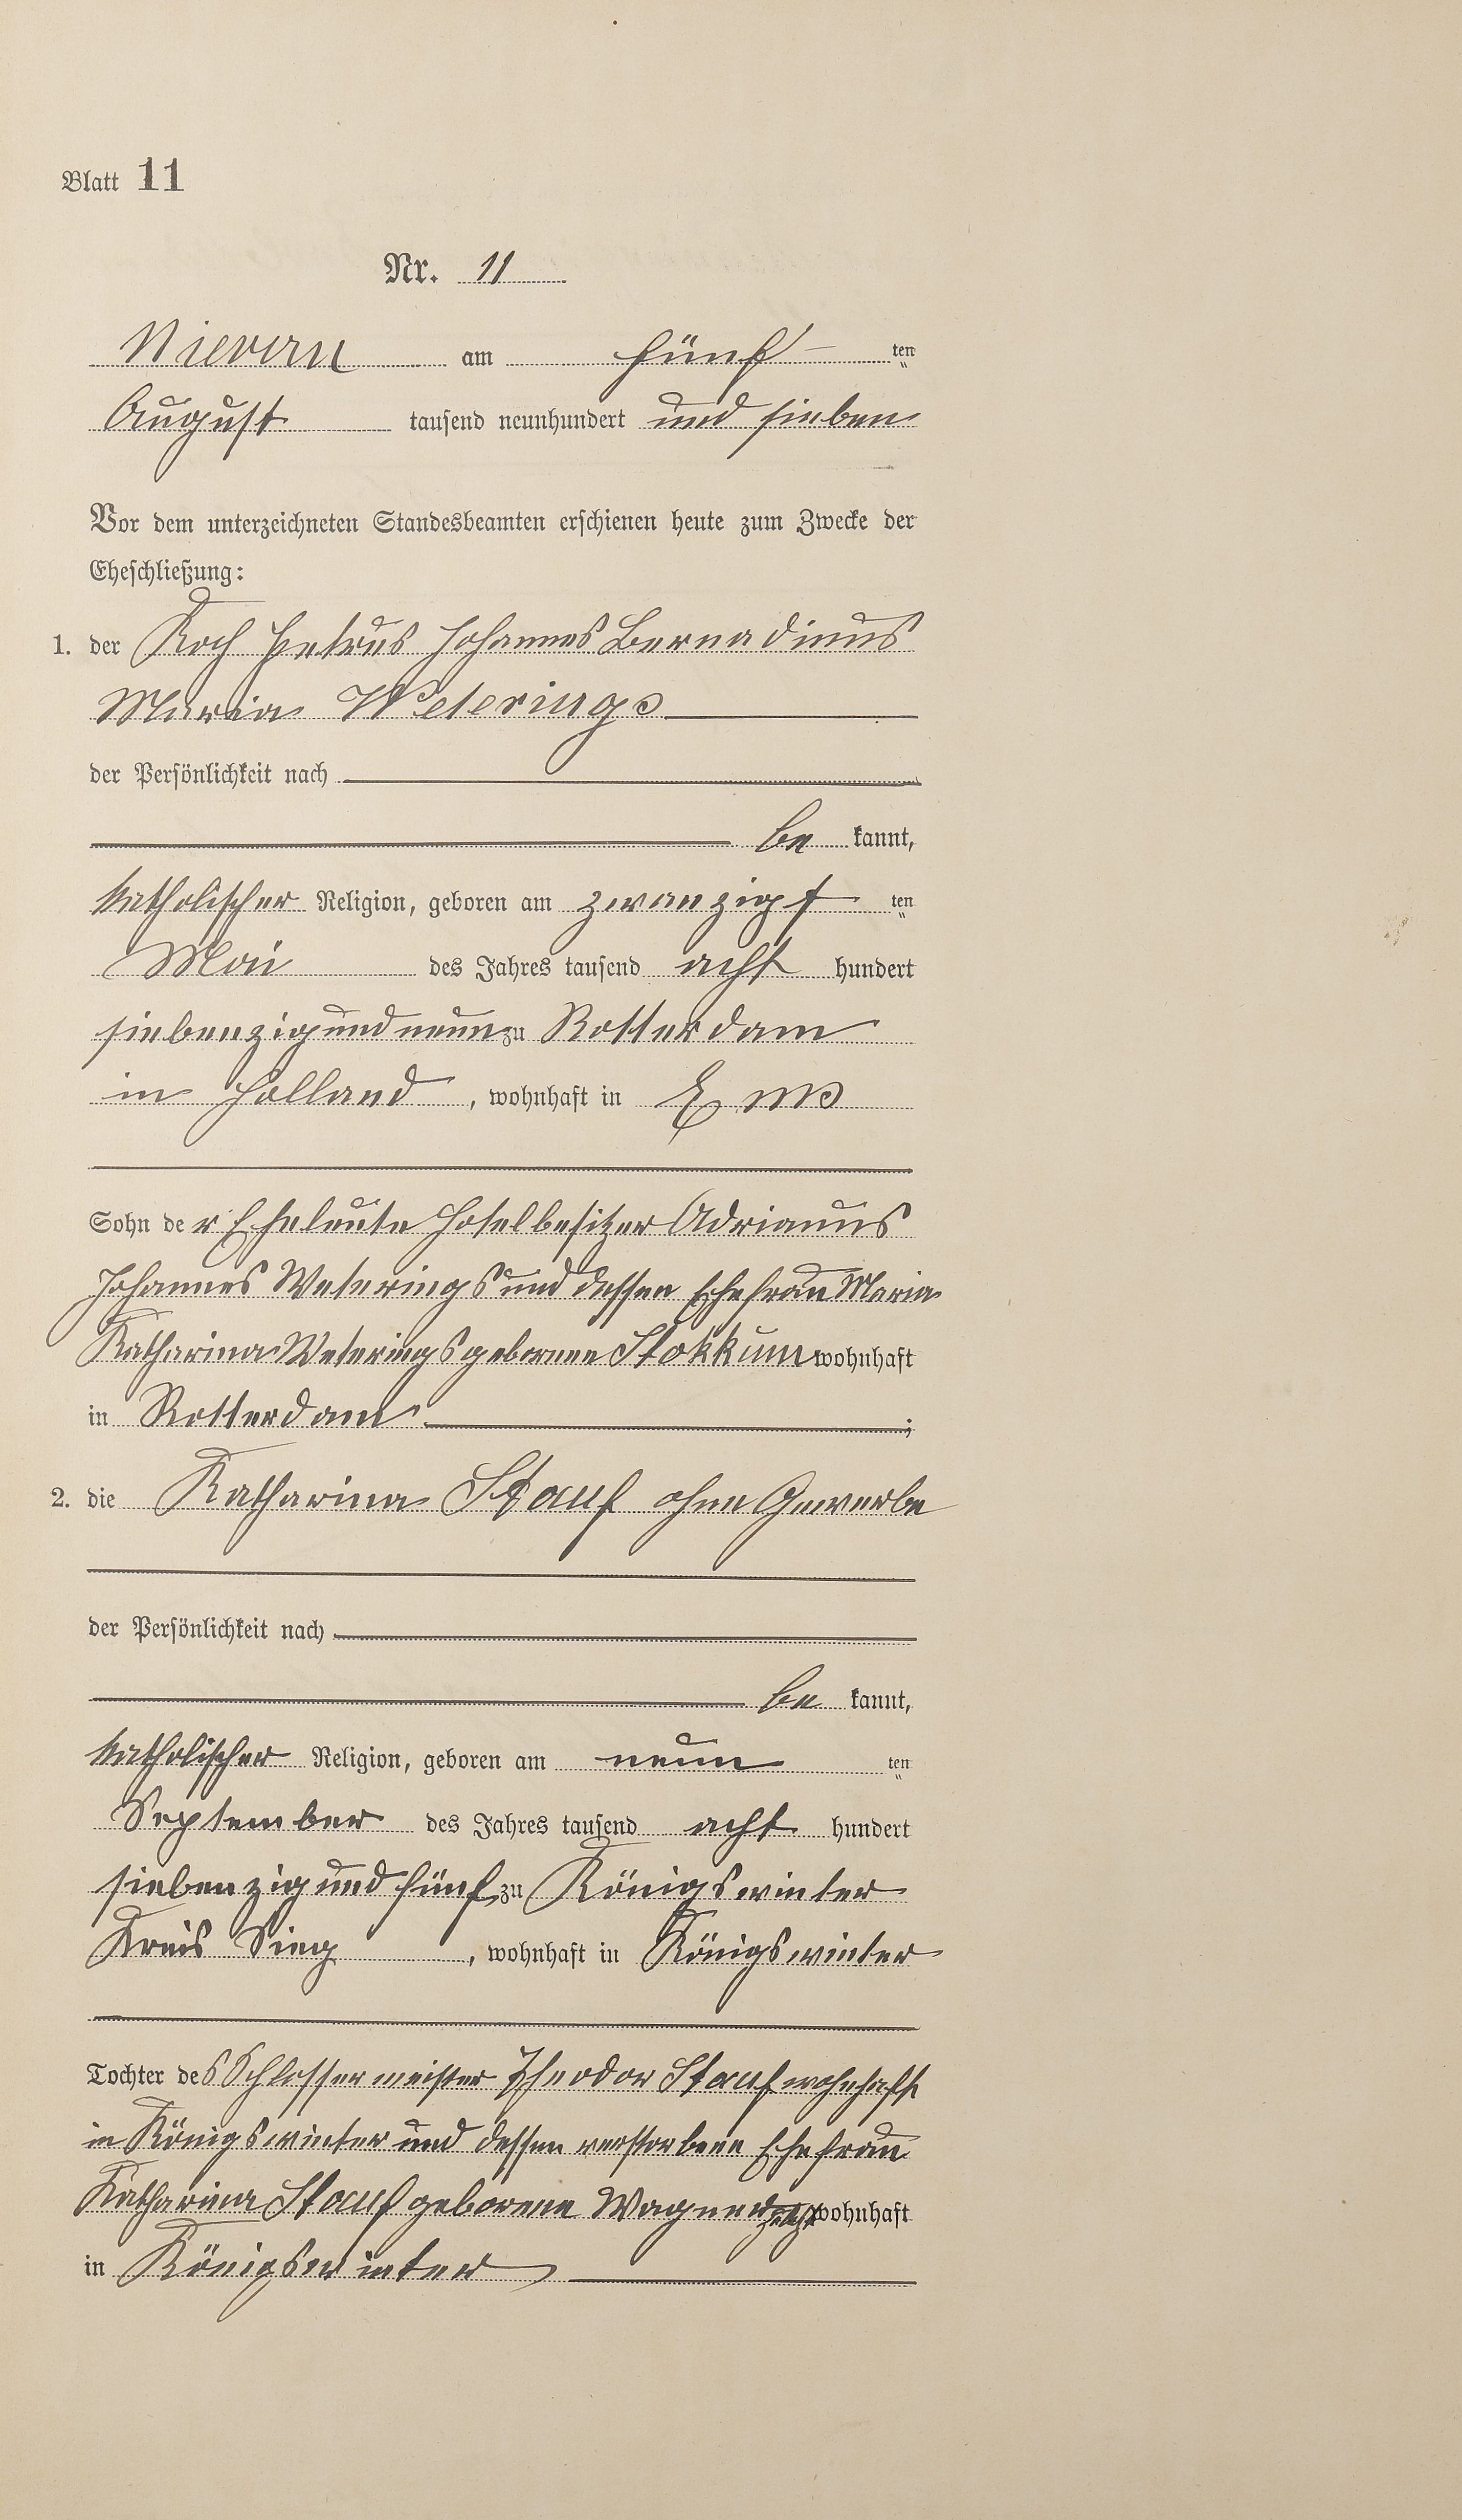 Blatt 11
Nr. 11
Nievern am fünf ten
August tausend neunhundert und sieben
Vor dem unterzeichneten Standesbeamten erschienen heute zum Zwecke der
Eheschließung:
1. der Koch Petrus Johannes Bernadinus
Maria Weterings
der Persönlichkeit nach
be kannt,
katholischer Religion, geboren am zwanzigst ten
Mai des Jahres tausend acht hundert
siebenzig und neun zu Rotterdam
in Holland, wohnhaft in Ems
Sohn der Eheleute Hotelbesitzer Adrianus
Johannes Weterings und dessen Ehefrau Maria
Katharina Weterings geborene Stokkum wohnhaft
in Rotterdam ;
2. die Katharina Stauf ohne Gewerbe
der Persönlichkeit nach
be kannt,
katholischer Religion, geboren am neun ten
September des Jahres tausend acht hundert
siebenzig und fünf zu Königswinter
Kreis Sieg, wohnhaft in Königswinter
Tochter des Schlossermeister Theodor Stauf wohnhaft
in Königswinter und dessen verstorbene Ehefrau
Katharina Stauf geborene Wagner zuletzt wohnhaft
in Königswinter